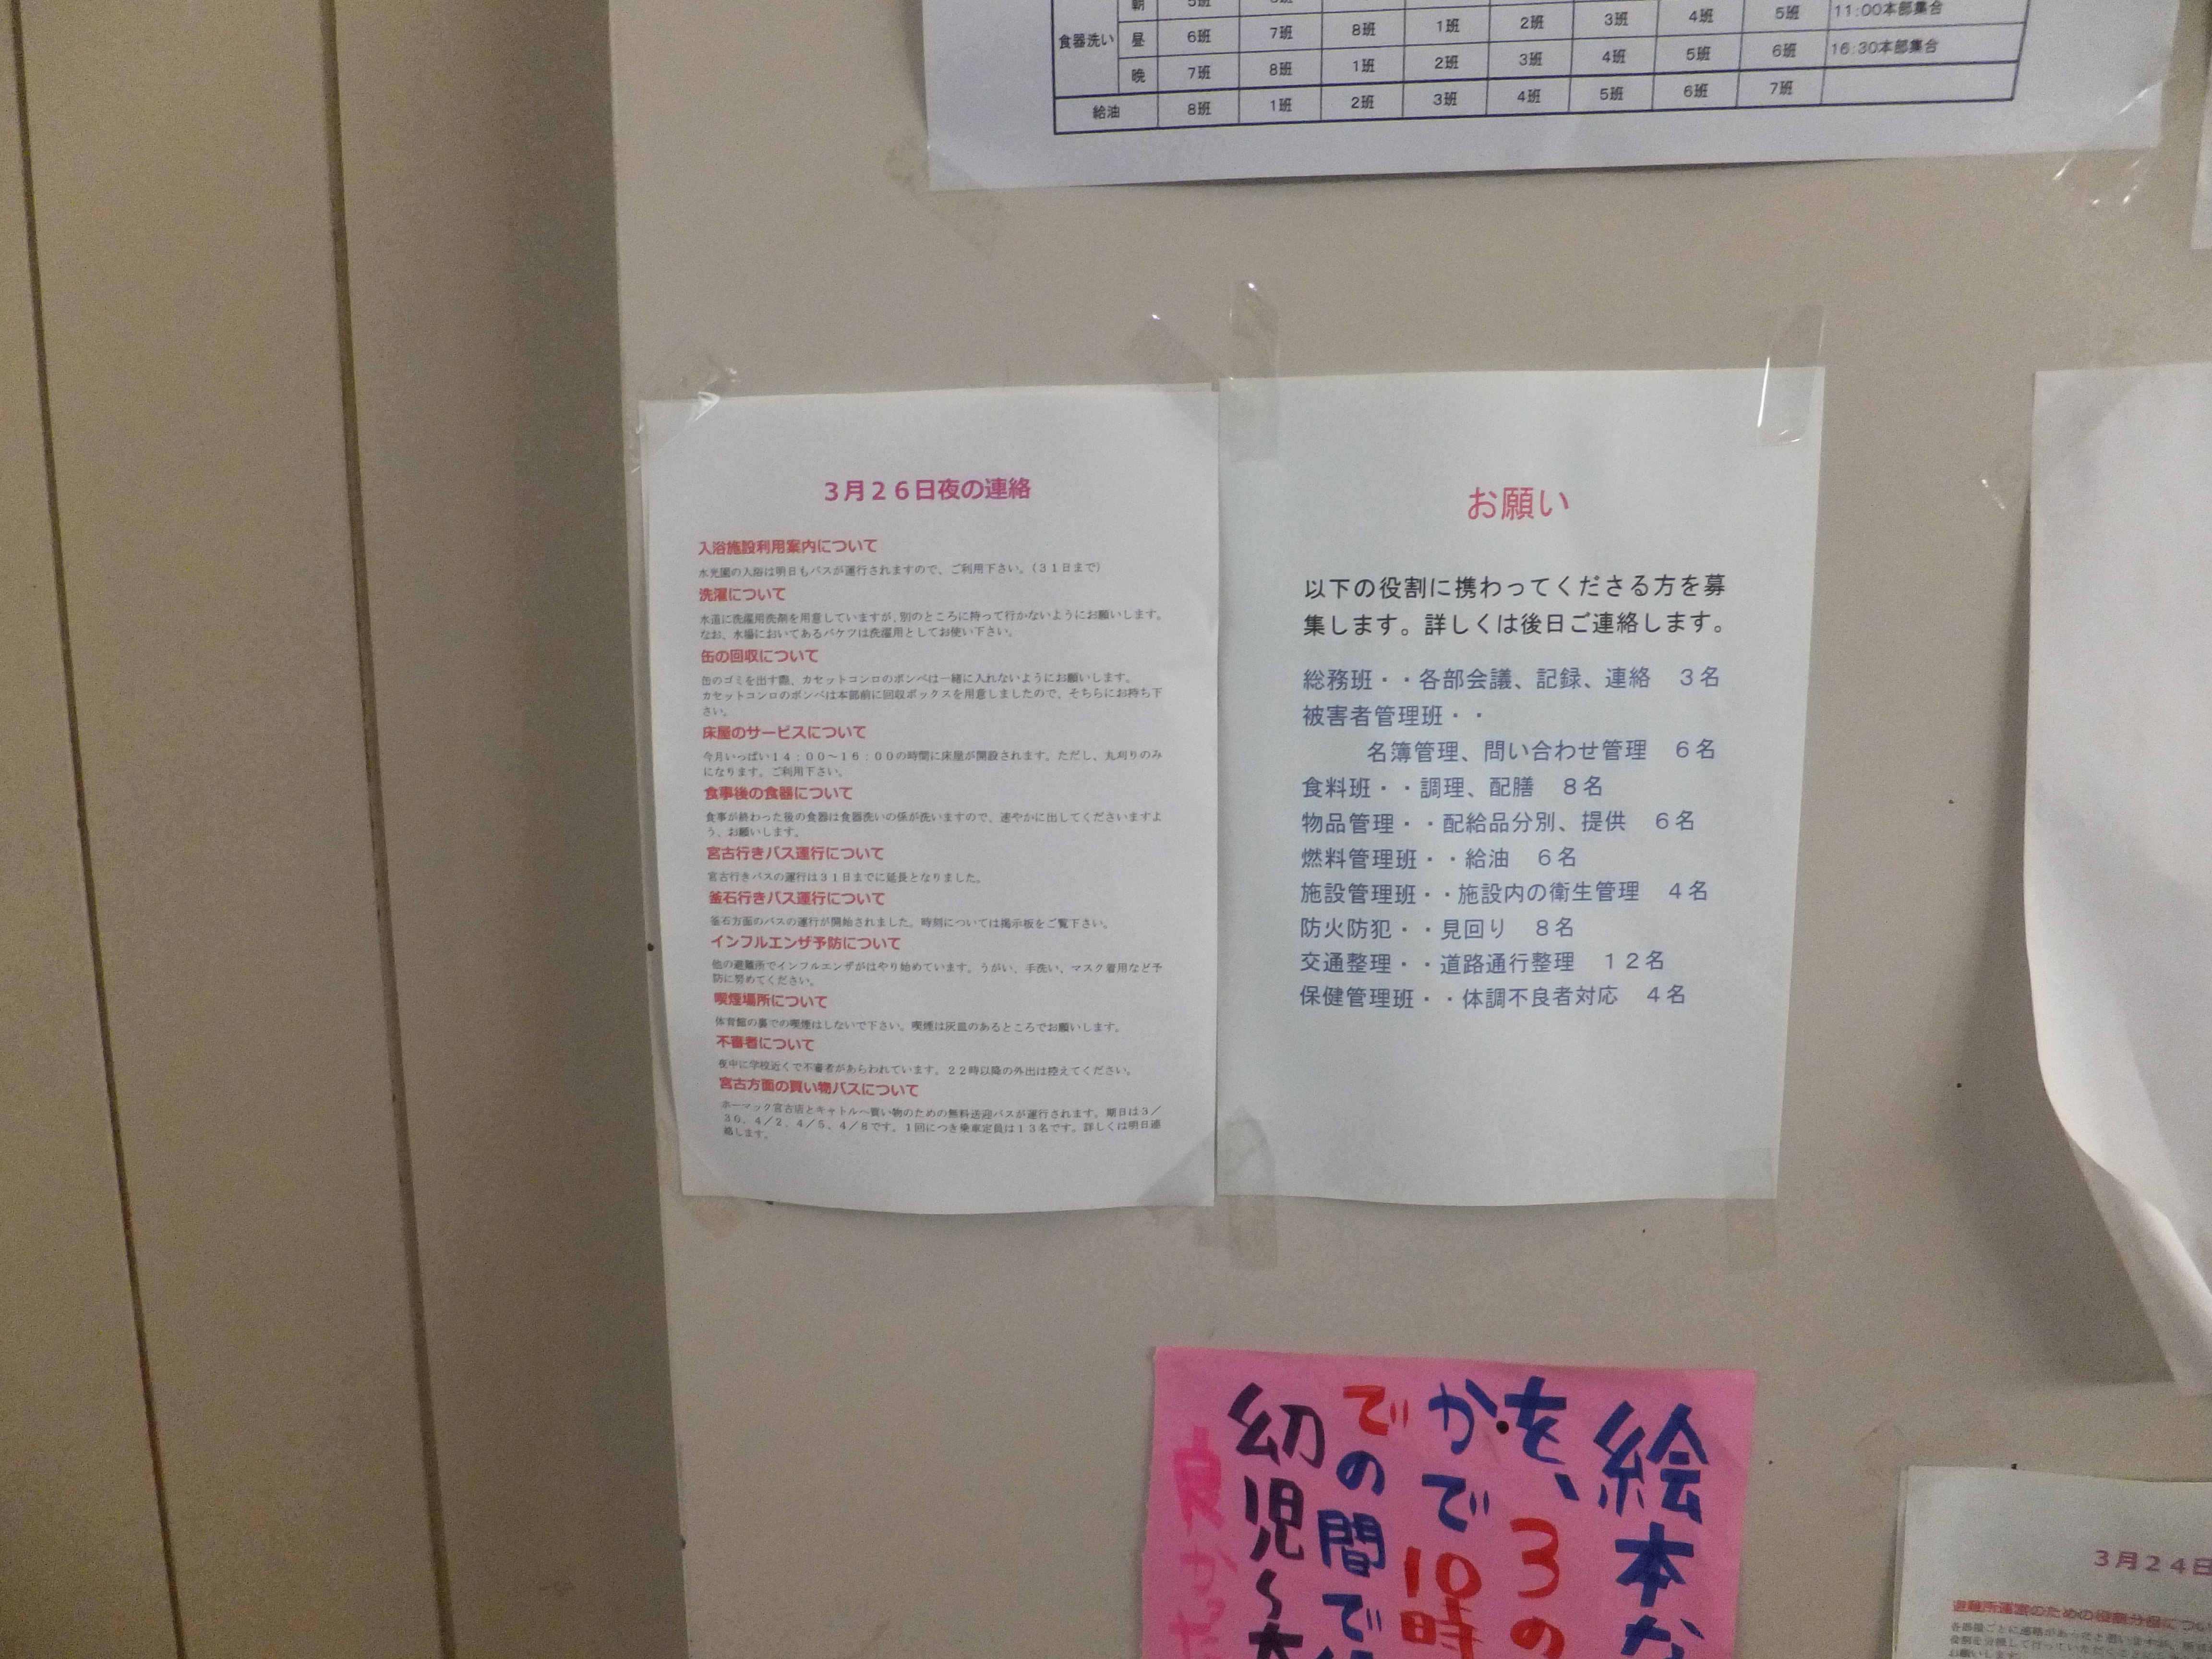 朝 5班 11:00本部集合
食器洗い 昼 6班 7班 8班 1班 2班 3班 4班 5班 16:30本部集合
晩 7班 8班 1班 2班 3班 4班 5班 6班
給油 8班 1班 2班 3班 4班 5班 6班 7班
3月26日夜の連絡
入浴施設利用案内について
水光園の入浴は明日もバスが運行されますので、ご利用下さい。(31日まで)
洗濯について
水道に洗濯用洗剤を用意していますが、別のところに持って行かないようにお願いします。
なお、水場においてあるバケツは洗濯用としてお使い下さい。
缶の回収について
缶のゴミを出す際、カセットコンロのボンベは一緒に入れないようにお願いします。
カセットコンロのボンベは本部前に回収ボックスを用意しましたので、そちらにお持ち下
さい。
床屋のサービスについて
今月いっぱい14:00～16:00の時間に床屋が開設されます。ただし、丸刈りのみ
になります。ご利用下さい。
食事後の食器について
食事が終わった後の食器は食器洗いの係が洗いますので、速やかに出してくださいますよ
う、お願いします。
宮古行きバス運行について
宮古行きバスの運行は31日までに延長となりました。
釜石行きバス運行について
釜石方面のバスの運行が開始されました。時刻については掲示板をご覧下さい。
インフルエンザ予防について
他の避難所でインフルエンザがはやり始めています。うがい、手洗い、マスク着用など予
防に努めてください。
喫煙場所について
体育館の裏での喫煙はしないで下さい。喫煙は灰皿のあるところでお願いします。
不審者について
夜中に学校近くで不審者があらわれています。22時以降の外出は控えてください。
宮古方面の買い物バスについて
ホーマック宮古店とキャトルへ買い物のための無料送迎バスが運行されます。期日は3/
30、4/2、4/5、4/8です。1回につき乗車定員は13名です。詳しくは明日連
絡します。
お願い
以下の役割に携わってくださる方を募
集します。詳しくは後日ご連絡します。
総務班・・各部会議、記録、連絡 3名
被害者管理班・・
名簿管理、問い合わせ管理 6名
食料班・・調理、配膳 8名
物品管理・・配給品分別、提供 6名
燃料管理班・・給油 6名
施設管理班・・施設内の衛生管理 4名
防火防犯・・見回り 8名
交通整理・・道路通行整理 12名
保健管理班・・体調不良者対応 4名
絵本な
を、3の
かで10時
での間で
幼児～
良かった
3月24日
避難所運営のための役割分担につい